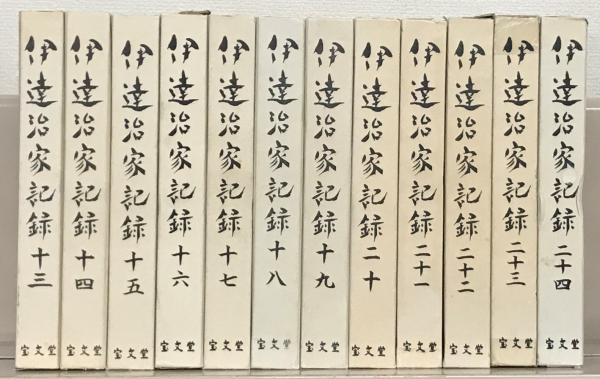 伊達治家記録 十三
宝文堂
伊達治家記録 十四
宝文堂
伊達治家記録 十五
宝文堂
伊達治家記録 十六
宝文堂
伊達治家記録 十七
宝文堂
伊達治家記録 十八
宝文堂
伊達治家記録 十九
宝文堂
伊達治家記録 二十
宝文堂
伊達治家記録 二十一
宝文堂
伊達治家記録 二十二
宝文堂
伊達治家記録 二十三
宝文堂
伊達治家記録 二十四
宝文堂